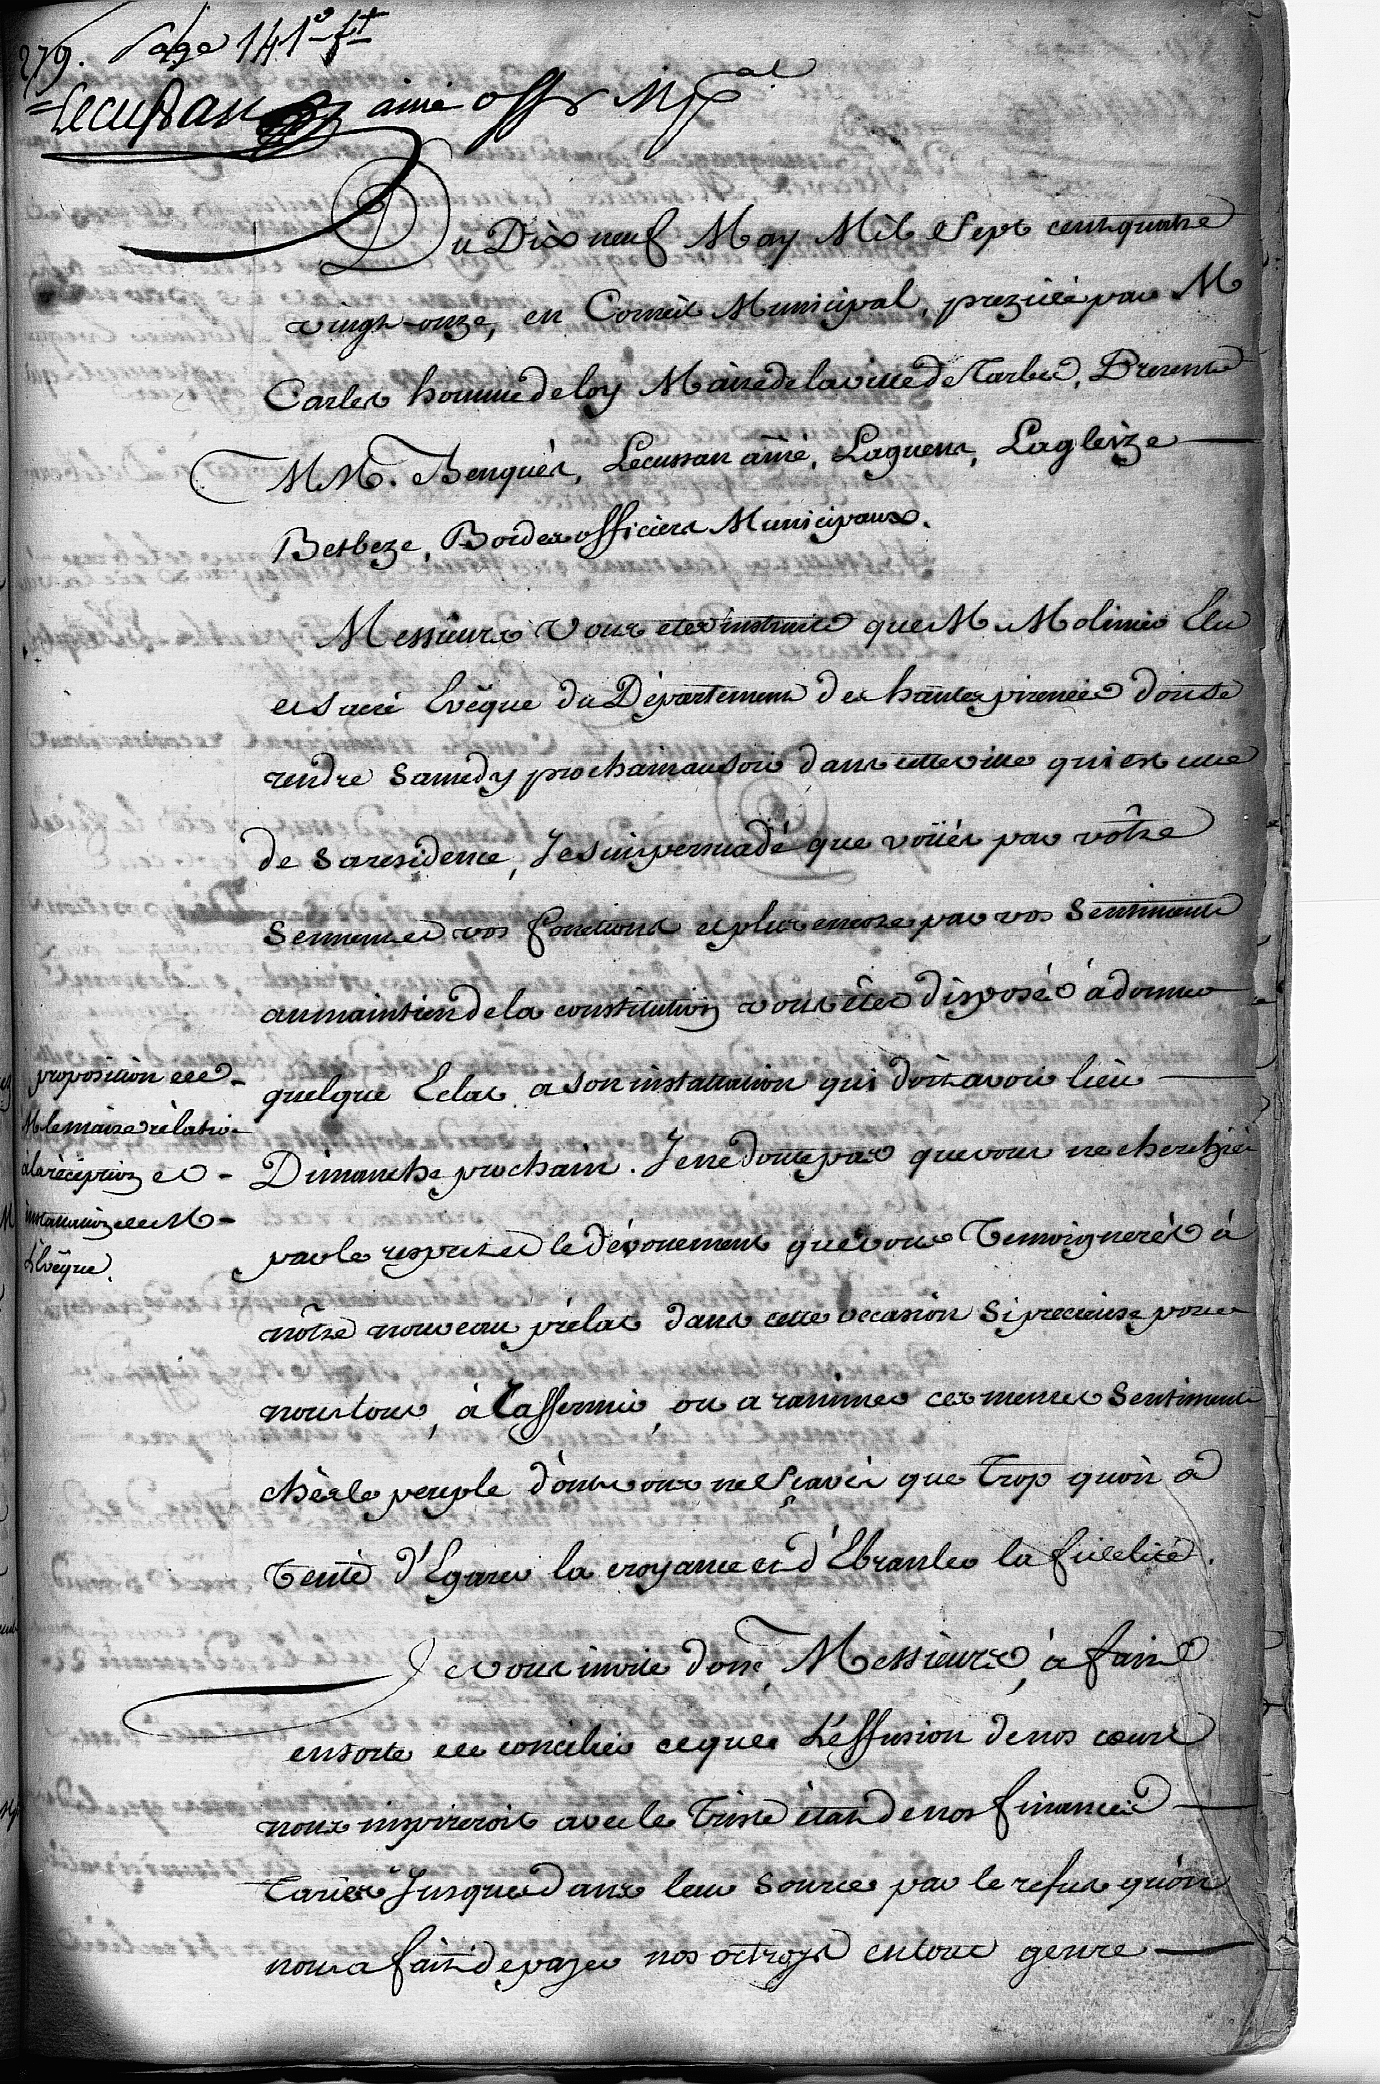 279. Page 141 Rt
Lecussan ainé offr Mpal
Du Dix neuf May Mil Sept cent quatre
vingt-onze, en Conseil Municipal, prezidé par M
Carles homme de loy Maire de la ville de Tarbes, Presents
MM. Benqués, Lecussan ainé, Laguens, Lagleize
Berbeze, Bordes officiers Municipaux.
Messieurs Vous etes instruits que M. Molinier Elu
et sacré Evêque du Département des hautes pirenées doit se
rendre Samedy prochain au soir dans cette ville qui est celle
de sa residence, Je suis persuadé que voüés par vôtre
Serment et vos fonctions et plus encore par vos Sentiments
au maintien de la constitution vous êtes disposés à donner
quelque Eclat a son installation qui doit avoir lieu
Dimanche prochain. Je ne doute pas que vous ne cherchiés
par le respect et le dévouement que vous Temoignerés à
nôtre nouveau prélat dans cette occasion Si precieuse pour
nous tous, à raffermir, ou a ranimer ces memes Sentiments
chés le peuple dont vous ne Sçavés que trop qu'on a
Tenté d'Egarer la croyance et d'Ebranler la fidelité.
Je vous invite donc, Messieurs, à faire
ensorte de concilier ce que L'effusion de nos cœurs
nous inspireroit avec le Triste état de nos finances
Taries Jusques dans leur Source par le refus qu'on
nous a fait de payer nos octroys en tout genre
proposition de
M le maire rélative
à la réception et
installation de M
L'Evêque.